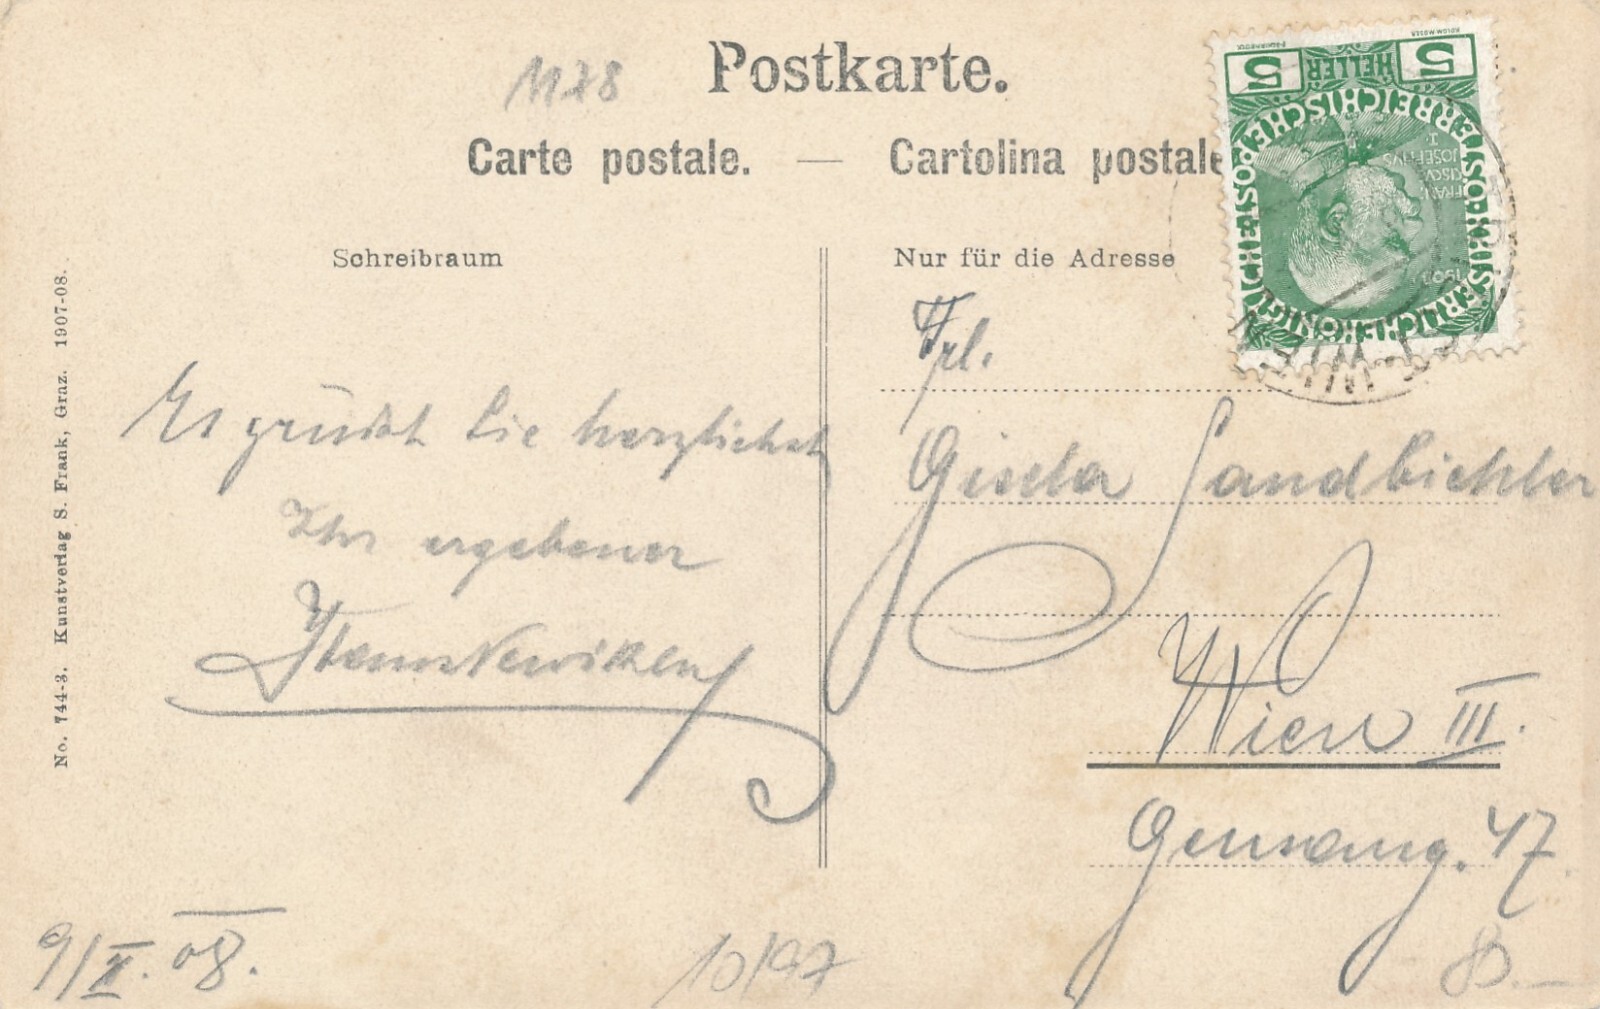 1178
Postkarte.
Carte postale. — Cartolina postale
Schreibraum
Nur für die Adresse
No. 744-3. Kunstverlag S. Frank, Graz. 1907-08.
5 HELLER 5
KAISERLICHE KÖNIGLICHE ÖSTERREICHISCHE POST
FRANCISCVS JOSEPHVS I.
1908
WIEN
Es grüsst Sie herzlichst
Ihr ergebener
Frl.
Gisela Sandbichler
Wien III.
47
9/X. 08.
10/97
80.—